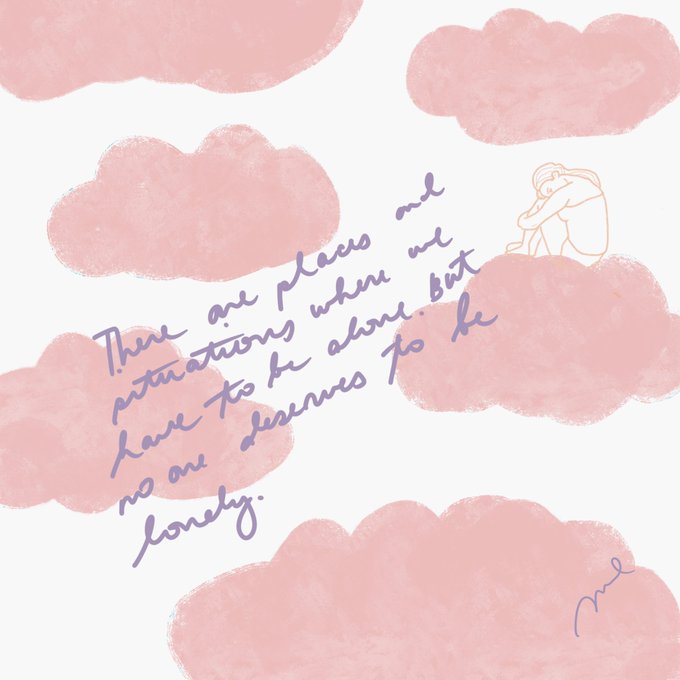 There are places and
situations where we
have to be alone. But
no one deserves to be
lonely.